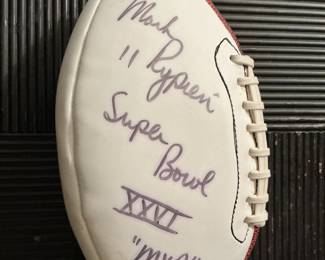 Mark
11 Rypien
Super
Bowl
XXVI
"MVP"